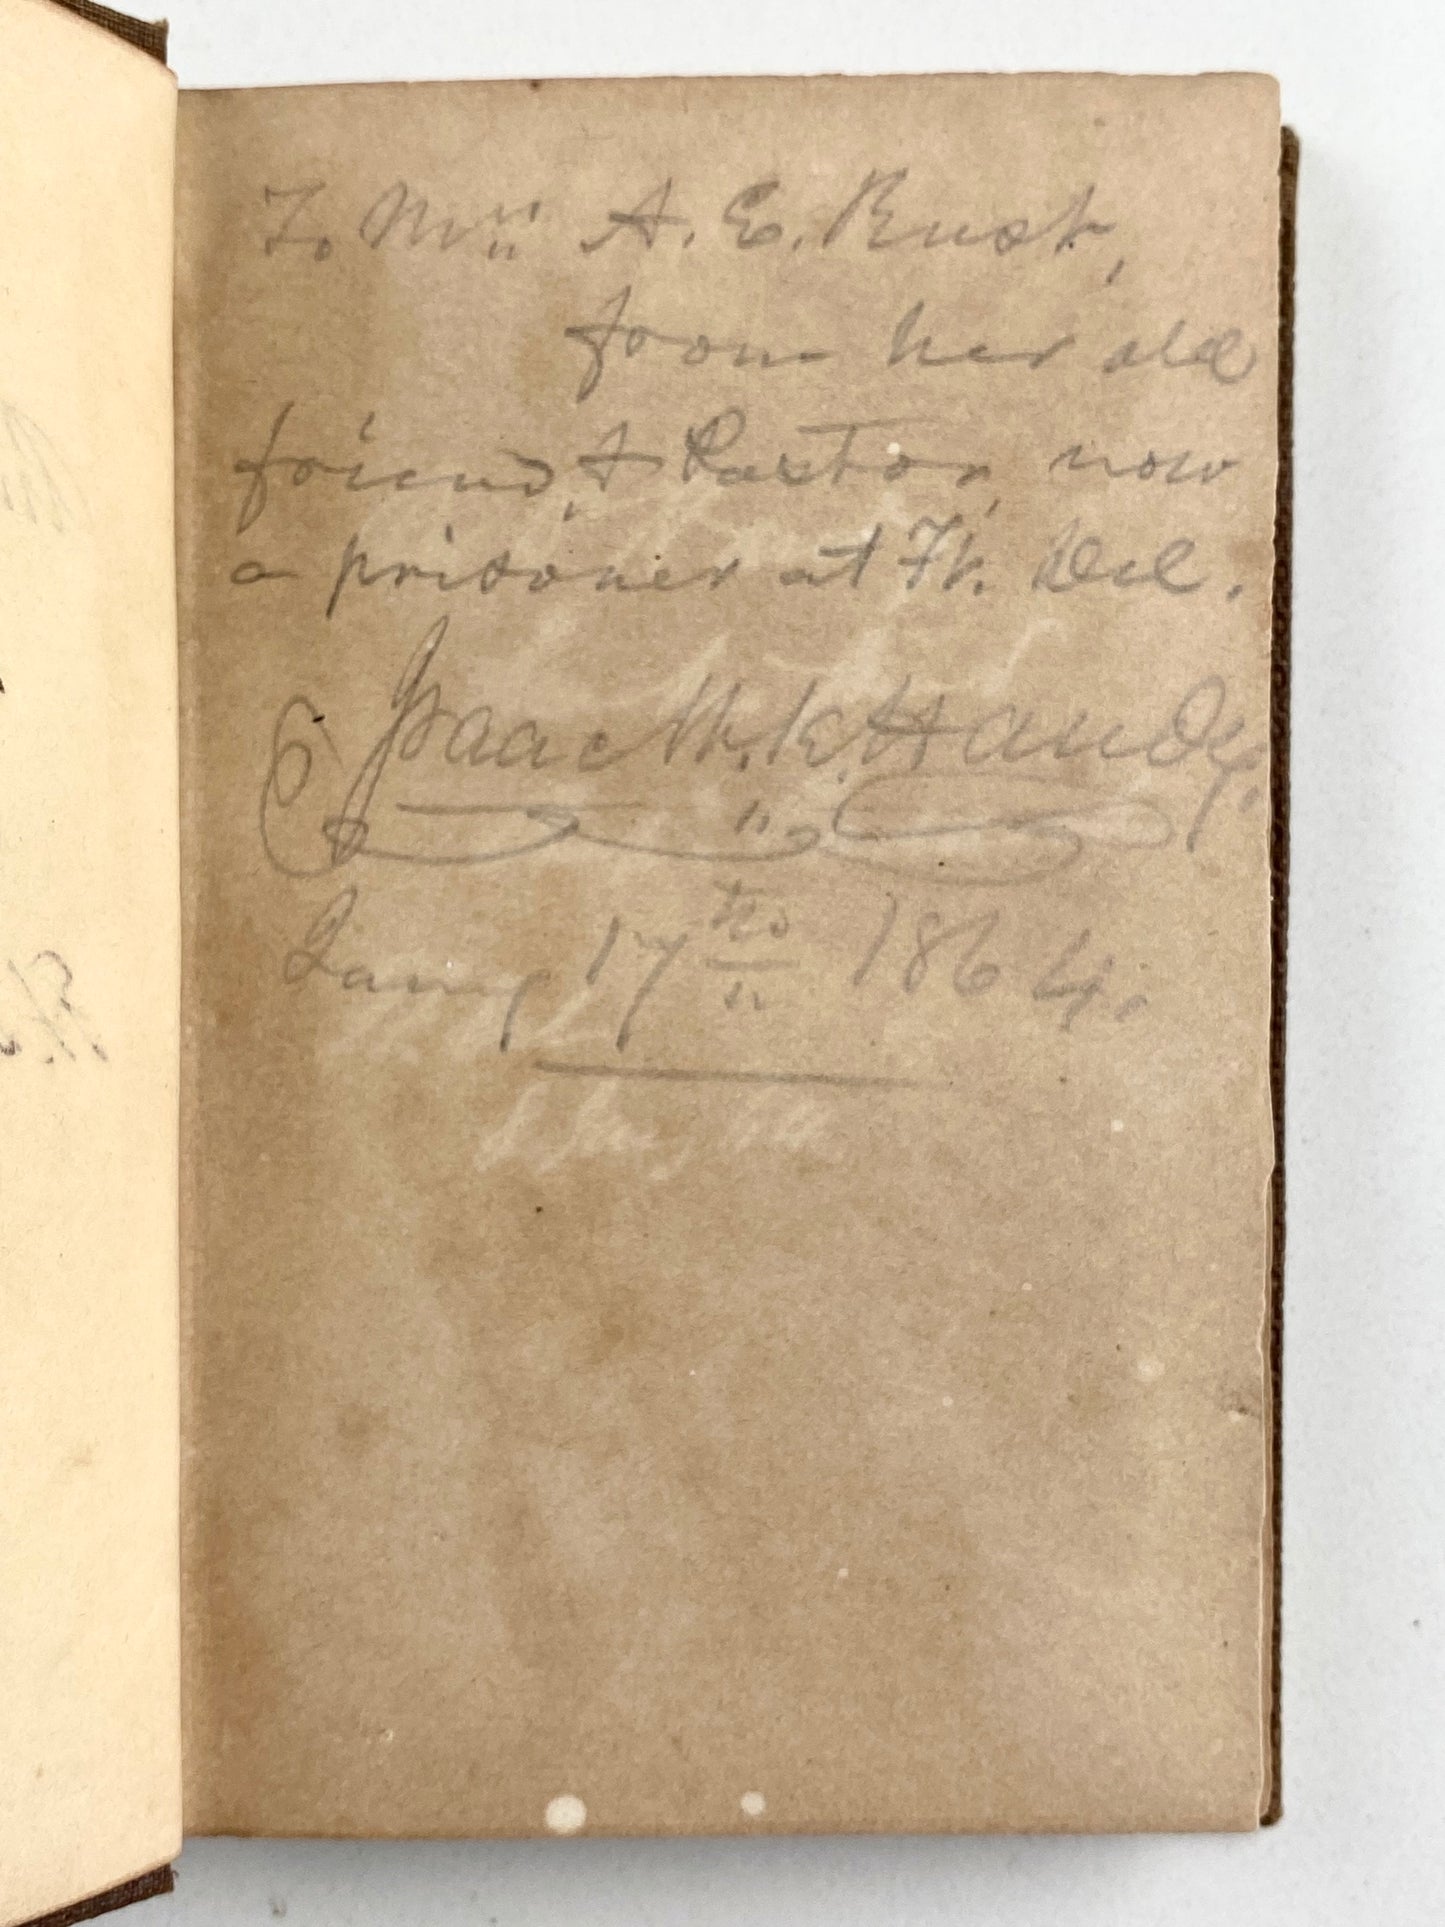 To Mrs A. E. Rust,
from her old
friend, & Pastor, now
a prisoner at Ft. Del.
Isaac W. K. Handy.
Jany 17th 1864.